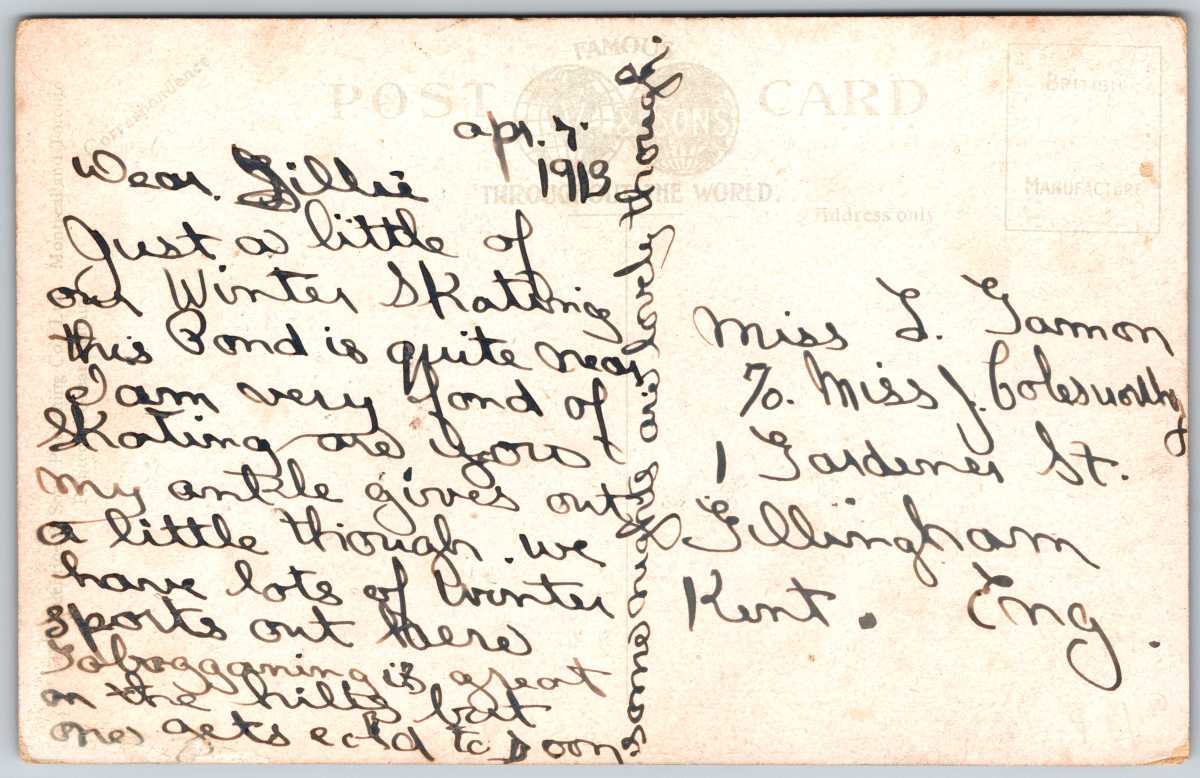 FAMOUS
POST CARD
& SONS
THROUGHOUT THE WORLD.
Correspondence
Address only
BRITISH
MANUFACTURE
Apr. 7.
1913
Dear Gillie
Just a little of
our Winter Skating
this Pond is quite near
I am very fond of
Skating are you
my ankle gives out
a little though. we
have lots of Winter
sports out here
Tobogganing is great
on the hills but
one gets cold to soon
some nights are lovely though.
Miss L. Gamon
c/o. Miss J. Colesworthy
1 Gardener St.
Gillingham
Kent. Eng.